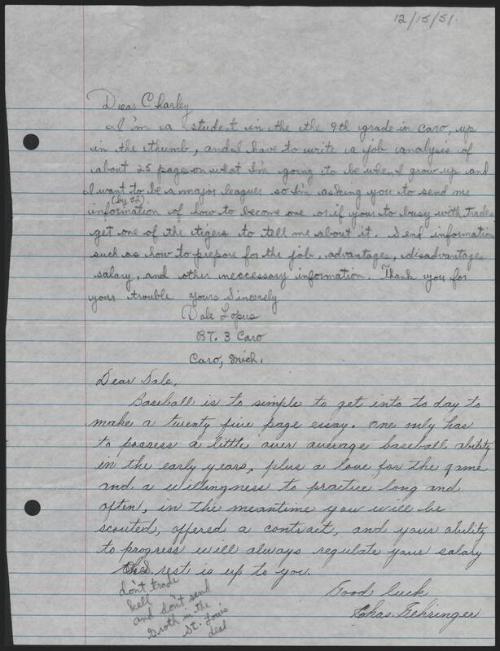 12/15/51.
Dear Charley
I'm a student in the the 9th grade in Caro, up
in the thumb, and I have to write a job analysis of
about 25 pages on what I'm going to be when I grow up and
I want to be a major leaguer so I'm asking you to send me
(by 52)
information of how to become one or if your to busy with trades
get one of the tigers to tell me about it. Send information
such as how to prepare for the job, advantages, disadvantages
salary, and other neccessary information. Thank you for
your trouble yours Sincerely
Dale Lopus
RT. 3 Caro
Caro, Mich.
Dear Dale,
Baseball is to simple to get into to day to
make a twenty five page essay. One only has
to possess a little over average baseball ability
in the early years, plus a love for the game
and a willingness to practice long and
often, in the meantime you will be
scouted, offered a contract, and your ability
to progress will always regulate your salary
The rest is up to you.
Good luck
Chas. Gehringer
don't trade
kell
and don't send
Groth in the
St. Louis
deal